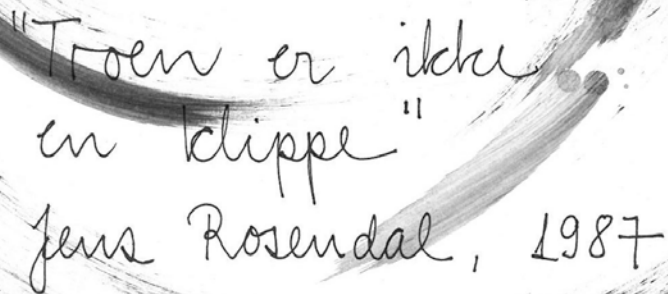 "Troen er ikke
en klippe"
Jens Rosendal, 1987